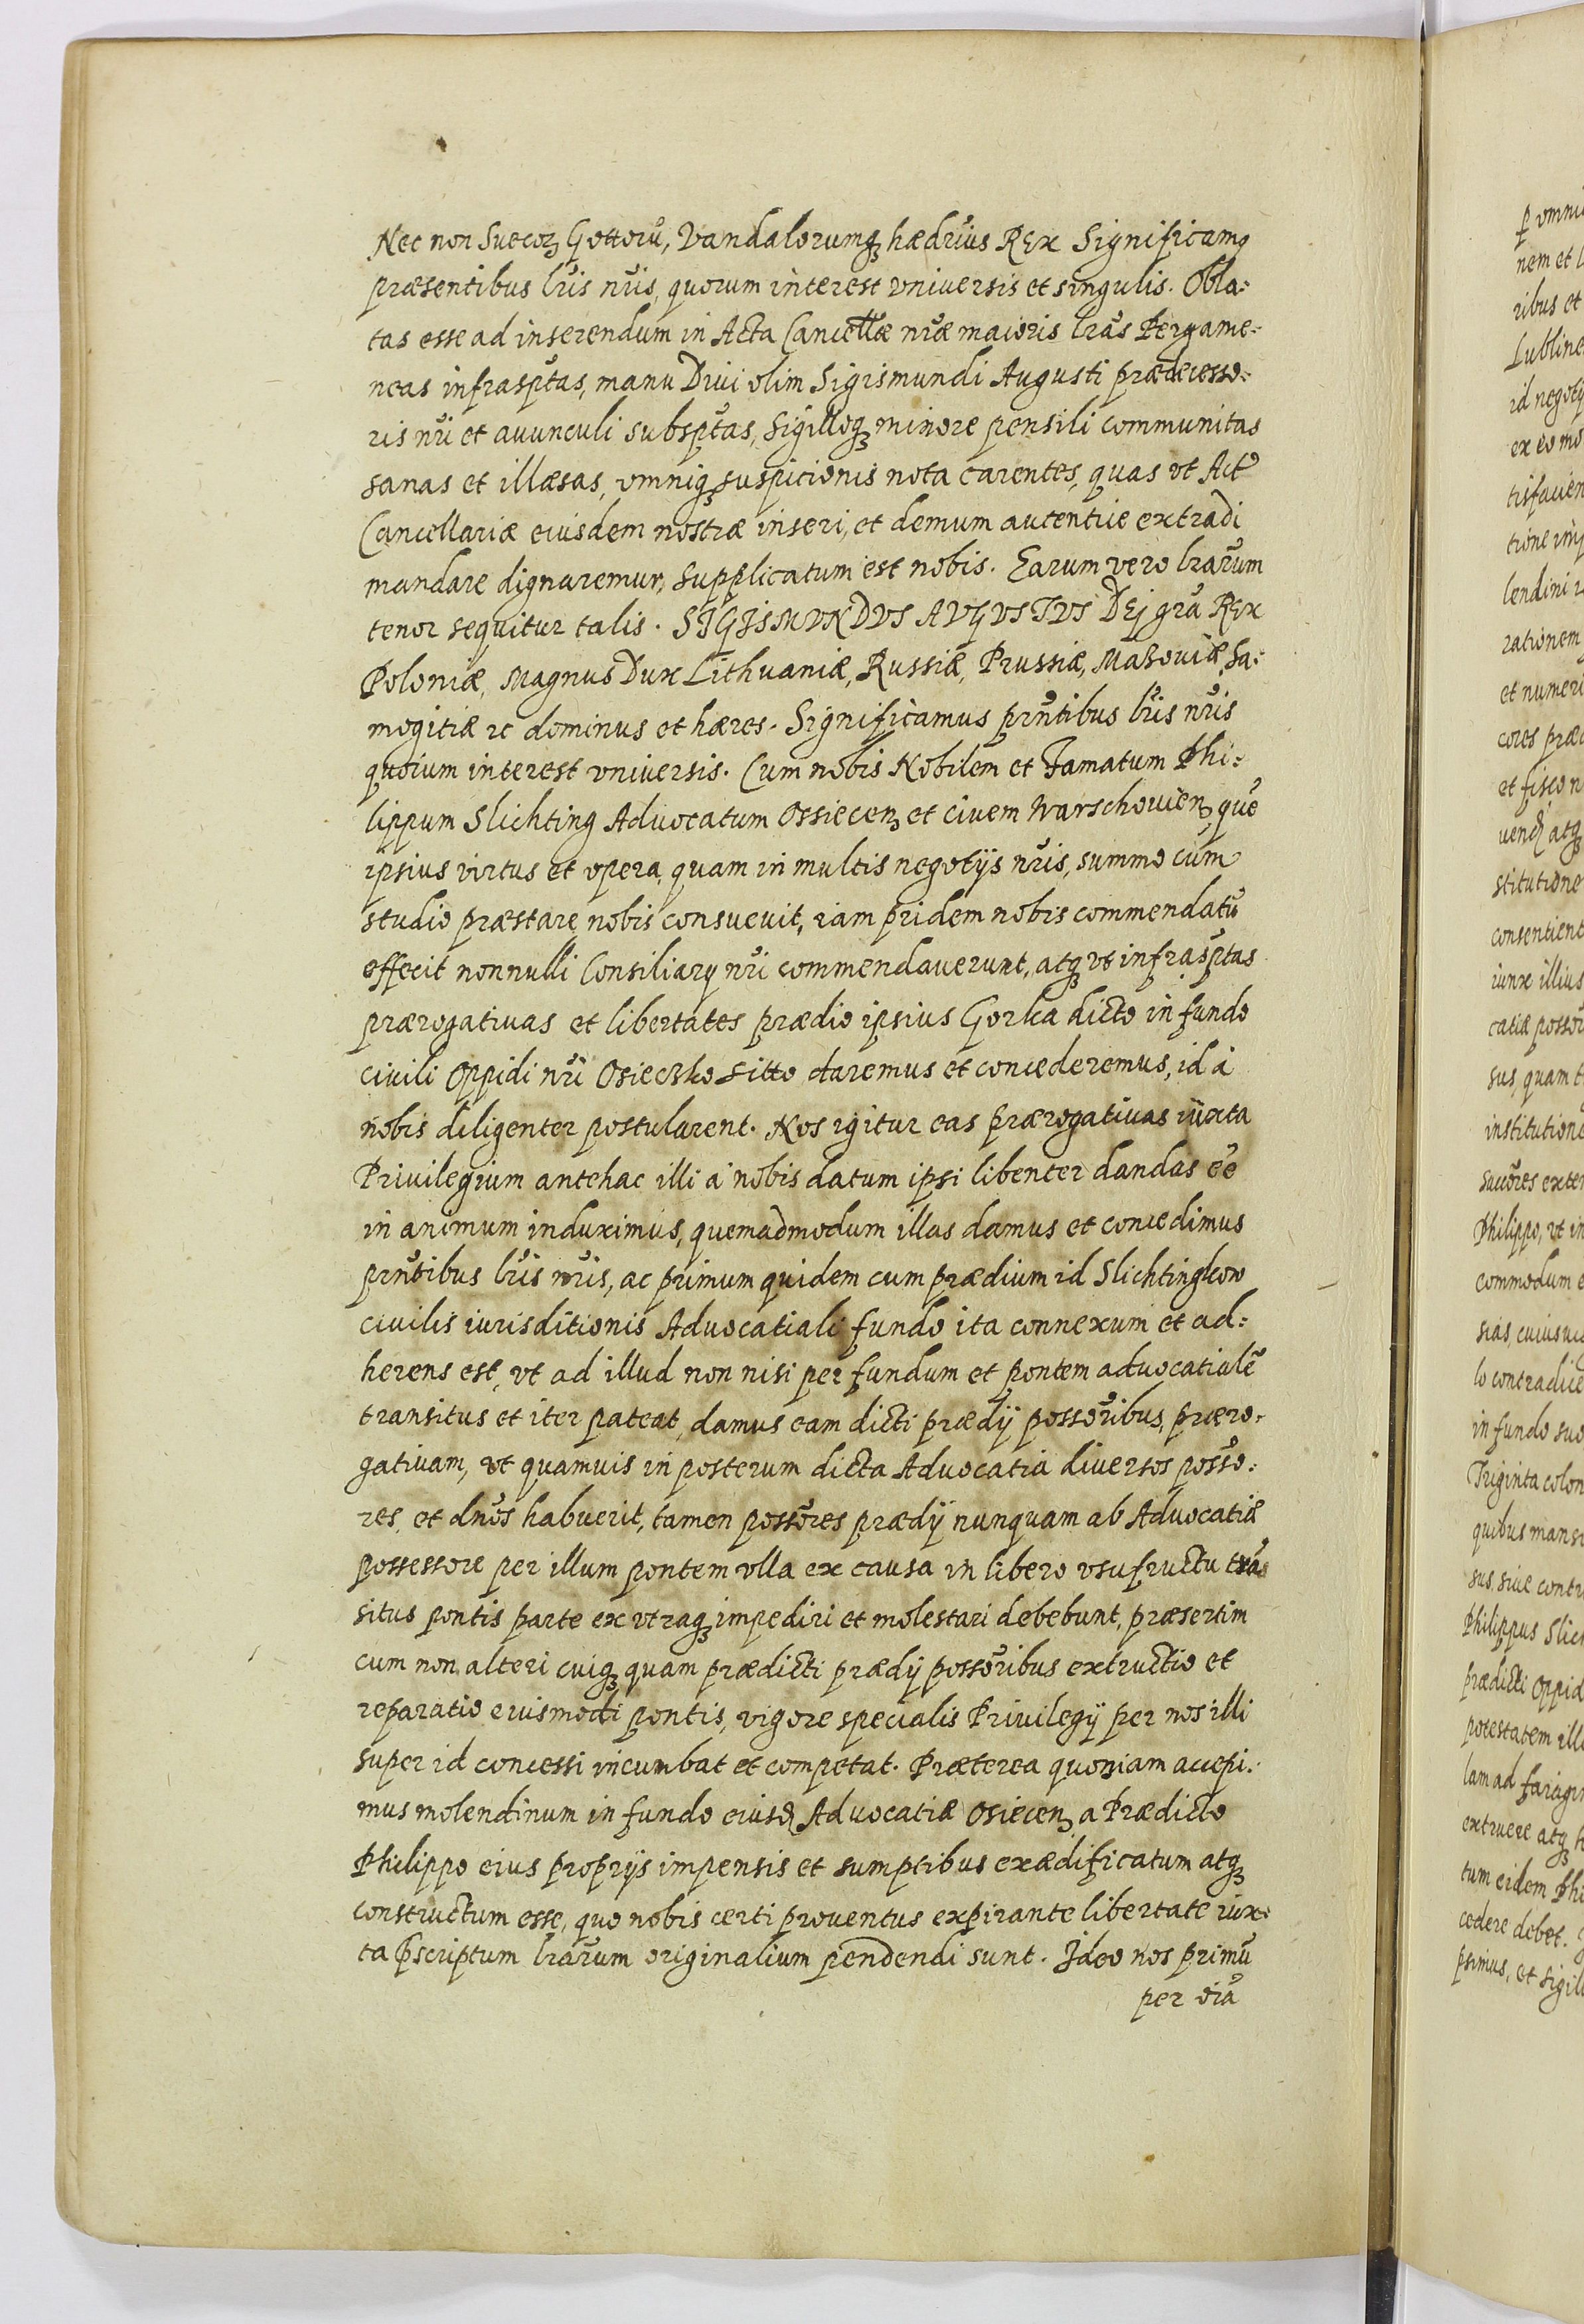 Nec non Suecoꝝ Gottorū, Vandalorumqꝫ hædrius REx Significamꝰ
præsentibus lr̃is nr̃is, quorum interest vniuersis et singulis. Obla-
tas esse ad inserendum in Acta Cancellæ nr̃æ maioris lrãs Pergame-
neas infrasptãs, manu Diui olim Sigismundi Augusti prædecesso-
ris nr̃i et auunculi subsptãs, Sigilloqꝫ minore pensili communitas
sanas et illæsas, omniqꝫ suspicionis nota carentes, quas vt Act
Cancellariæ eiusdem nostræ inseri, et demum autentice extradi
mandare dignaremur, supplicatum est nobis. Earum vero lrãrum
tenor sequitur talis. SIGISMVNDVS AVGVSTVS DEj grã REx
Poloniæ, Magnus Dux Lithuaniæ, Russiæ, Prussiæ, Masouiæ, Sa-
mogitiæ ꝛc dominus et hæres. Significamus prñtibus lr̃is nr̃is
quorum interest vniuersis. Cum nobis Nobilem et Famatum Phi-
lippum Slichting Aduocatum Ossiecenꝫ et ciuem Warschouienꝫ, quẽ
ipsius virtus et opera, quam in multis negotijs nr̃is, summo cum
studio præstare nobis consueuit, iam pridem nobis commendatū
effecit nonnulli Consiliarij nr̃i commendauerunt, atqꝫ vt infrasptãs
prærogatiuas et libertates prædio ipsius Gorka dicto in fundo
ciuili Oppidi nr̃i Osieczko sitto daremus et concederemus, id à
nobis diligenter postularent. Nos igitur eas prærogatiuas iuxta
Priuilegium antehac illi à nobis datum ipsi libenter dandas ẽẽ
in animum induximus, quemadmodum illas damus et concedimus
prñtibus lr̃is nr̃is, ac primum quidem cum prædium id Slichtingkow
ciuilis iurisditionis Aduocatiali fundo ita connexum et ad-
herens est, vt ad illud non nisi per fundum et pontem aduocatialẽ
transitus et iter pateat, damus eam dicti prædij possõribus, præro-
gatiuam, vt quamuis in posterum dicta Aduocatia diuersos possõ-
res, et dnõs habuerit, tamen possõres prædij nunquam ab Aduocatiæ
possessore per illum pontem vlla ex causa in libero vsufructu trã-
situs pontis parte ex vtraqꝫ impediri et molestari debebunt, præsertim
cum non alteri cuiqꝫ quam prædicti prædij possõribus extructio et
reparatio eiusmodi pontis, vigore specialis Priuilegij per nos illi
super id concessi incumbat et competat. Præterea quoniam accepi-
mus molendinum in fundo eiusd Aduocatiæ Osiecenꝫ a Prædicto
Philippo eius proprijs impensis et sumptibus exædificatum atqꝫ
constructum esse, quo nobis certi prouentus expirante libertate iux-
ta pscriptum lrãrum originalium pendendi sunt. Ideo nos primū
per oĩa
p omni
nem et l
ribus et
Lubline
id negotij
ex eo mo
tisfacien
tione imp
lendini r
rationem
et numeri
cores præd
et fisco n
uend atqꝫ
stitutione
consentient
iunx illius
catiæ possõr
sus, quam t
institutione
Succõres exter
Philippo, vt in
commodum e
sias, cuiusui
lo contradice
in fundo suo
Triginta colon
quibus mansi
sus, siue contr
Philippus Slic
prædicti Oppid
potestatem illi
lam ad farrgin
extruere atqꝫ h
tum eidem Phi
cedere debet.
psimus, et sigil